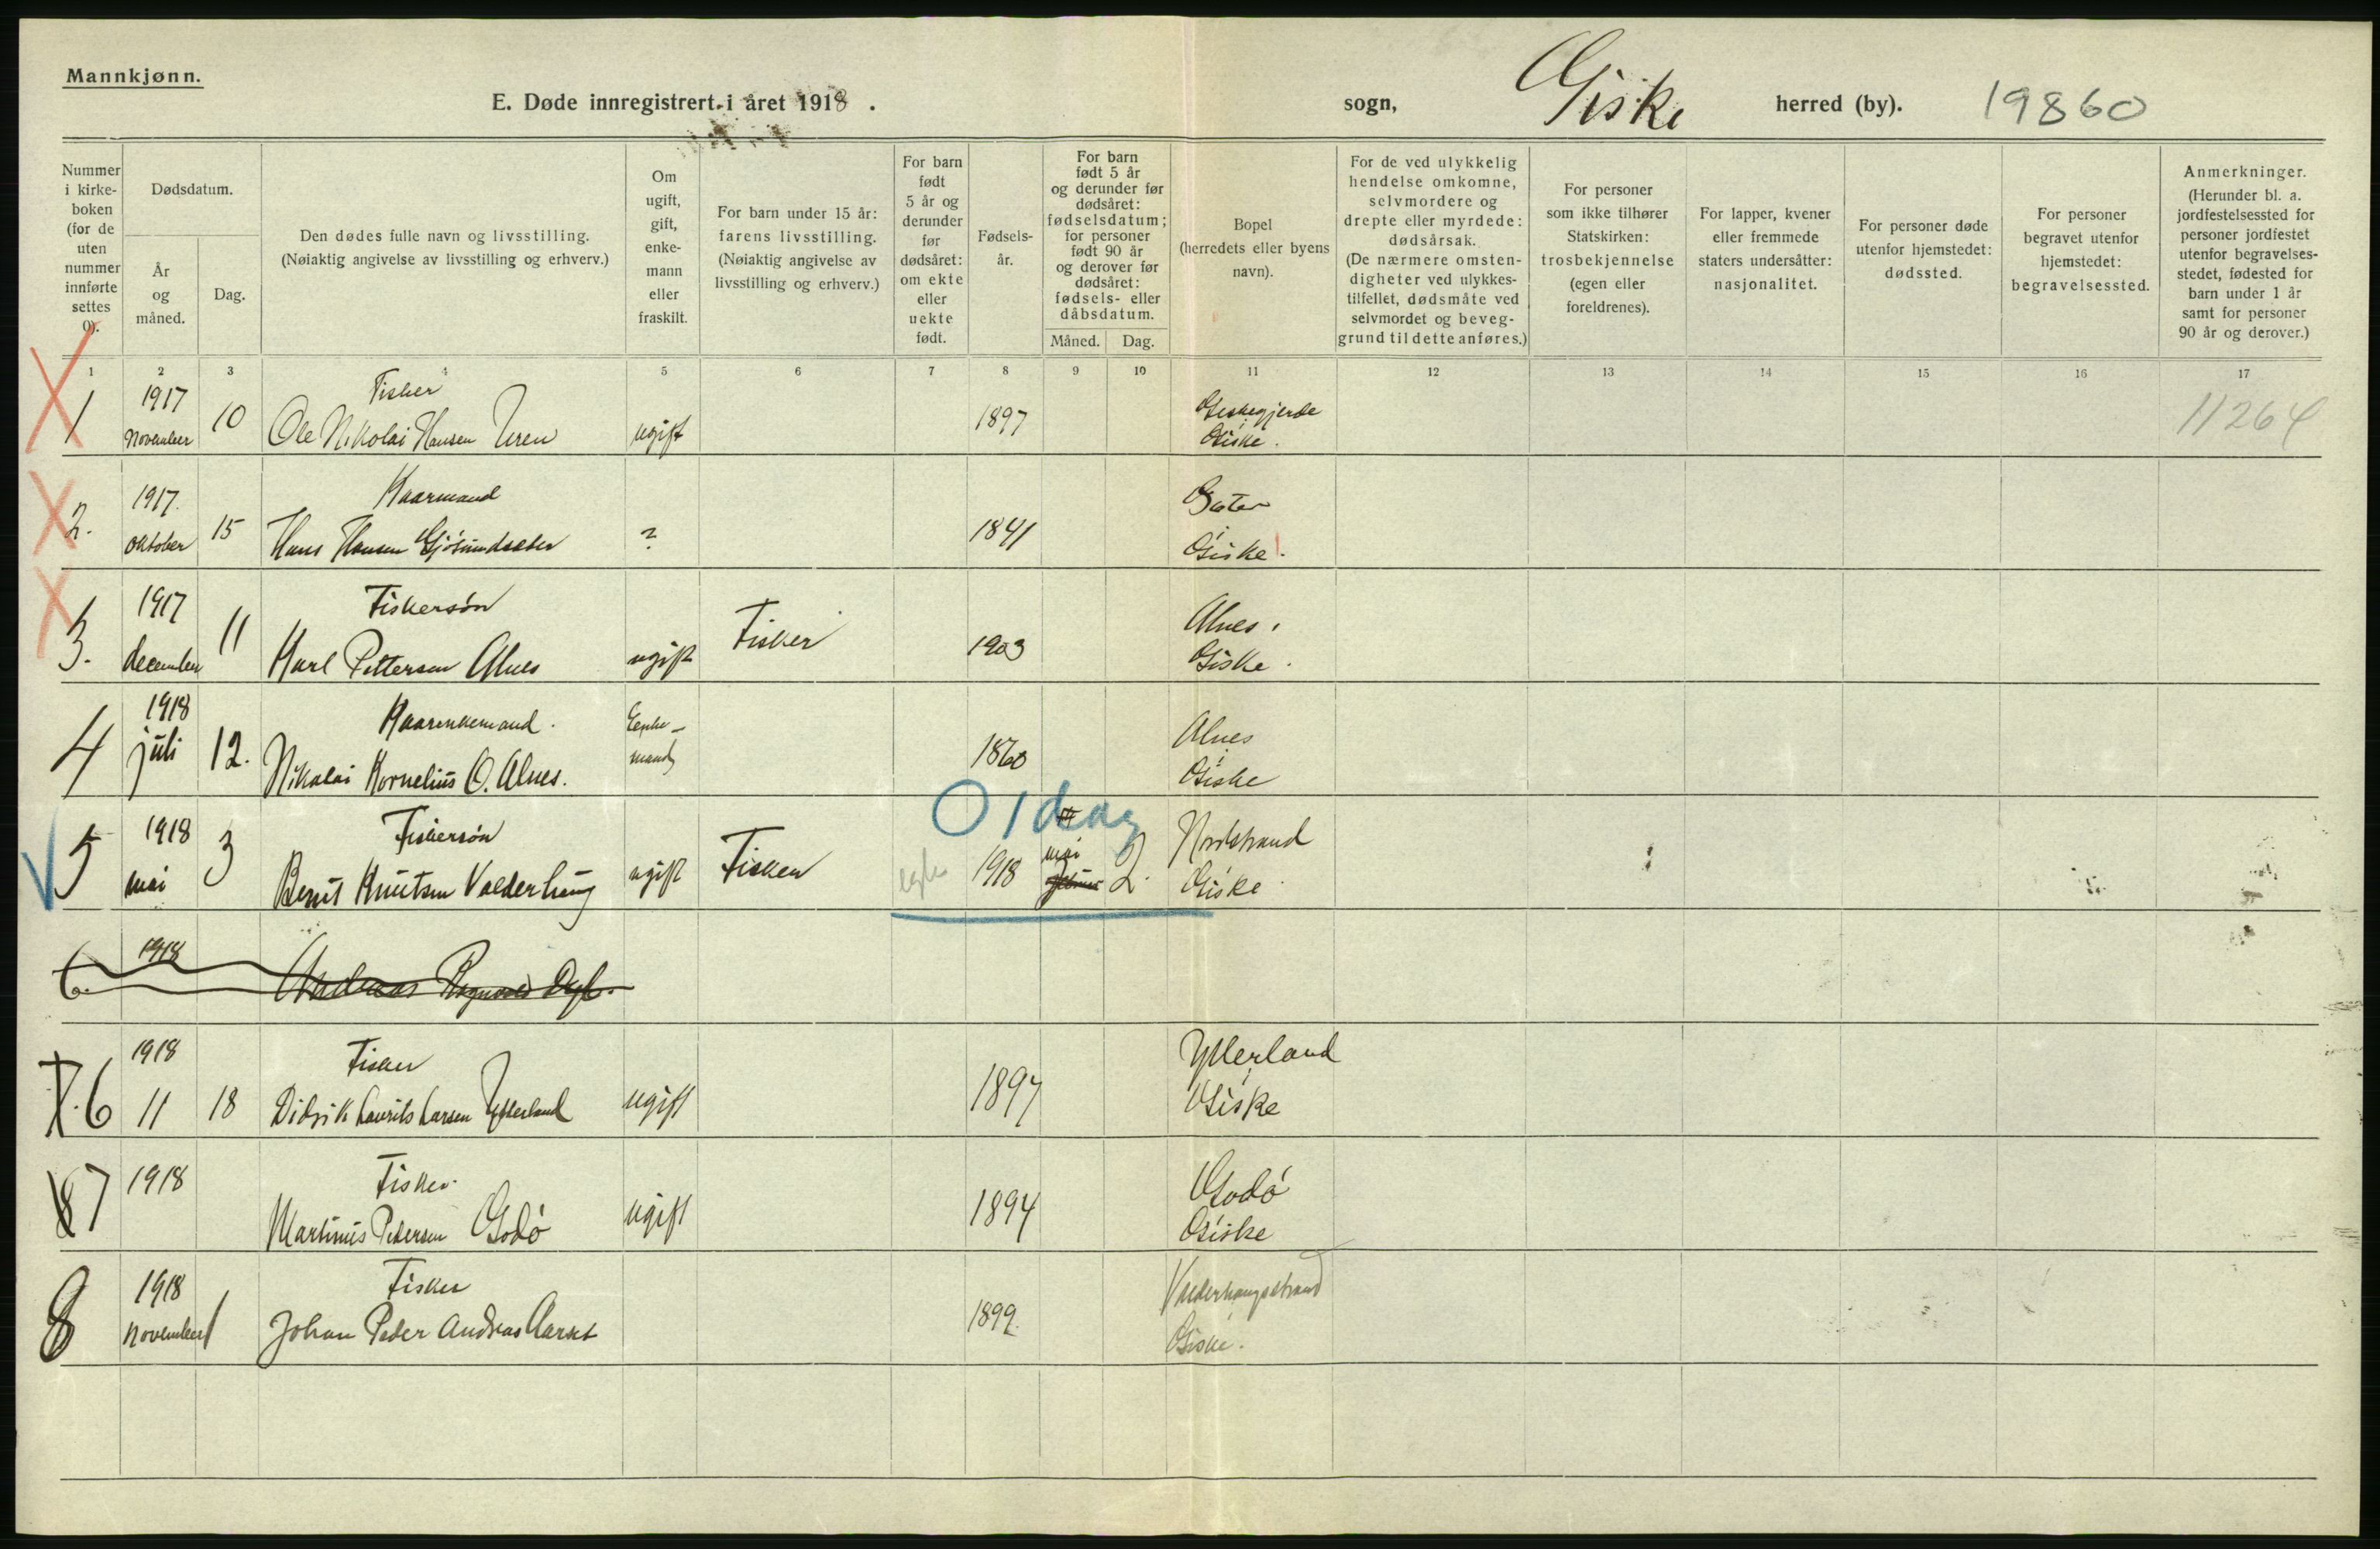 Mannkjønn.
E. Døde innregistrert i året 1918. sogn, Giske herred (by). 19860
Nummer i kirkeboken (for de uten nummer innførte settes 0).
Dødsdatum.
År og måned.
Dag.
Den dødes fulle navn og livsstilling.
(Nøiaktig angivelse av livsstilling og erhverv.)
Om ugift, gift, enkemann eller fraskilt.
For barn under 15 år: farens livsstilling. (Nøiaktig angivelse av livsstilling og erhverv.)
For barn født 5 år og derunder før dødsåret: om ekte eller uekte født.
Fødselsår.
For barn født 5 år og derunder før dødsåret: fødselsdatum; for personer født 90 år og derover før dødsåret: fødsels- eller dåbsdatum.
Måned. Dag.
Bopel (herredets eller byens navn).
For de ved ulykkelig hendelse omkomne, selvmordere og drepte eller myrdede: dødsårsak. (De nærmere omstendigheter ved ulykkestilfellet, dødsmåte ved selvmordet og beveggrund til dette anføres.)
For personer som ikke tilhører Statskirken: trosbekjennelse (egen eller foreldrenes).
For lapper, kvener eller fremmede staters undersåtter: nasjonalitet.
For personer døde utenfor hjemstedet: dødssted.
For personer begravet utenfor hjemstedet: begravelsessted.
Anmerkninger. (Herunder bl. a. jordfestelsessted for personer jordfestet utenfor begravelsesstedet, fødested for barn under 1 år samt for personer 90 år og derover.)
1 2 3 4 5 6 7 8 9 10 11 12 13 14 15 16 17
1917 Fisker Giskegjerde
1 November 10 Ole Nikolai Hansen Uren ugift 1897 Giske. 11264
1917. Kaarmand
2. oktober 15 Hans Hansen ? 1841 Giske.
1917 Fiskersøn Alnes
3. december 11 Karl Pettersen Alnes ugift Fisker 1903 Giske.
1918 Enke- Alnes
4 juli 12. Nikolai Kornelius O. Alnes. mand 1860 Giske
0 1 dag
1918 Fiskersøn mai Nordstrand
5 mai 3 Bernt Knutsen Valderhaug ugift Fisker 1918 2. Giske
6. 1918 Andreas Ragnvald
1918 Fisker Ytterland
7. 6 11 18 Didrik Laurits Larsen Ytterland ugift 1897 Giske
1918 Fisker Godø
8 7 Martinus Pedersen Godø ugift 1894 Giske
1918 Fisker Valderhaugstrand
8 November 1 Johan Peder Andreas Aarset 1899. Giske.